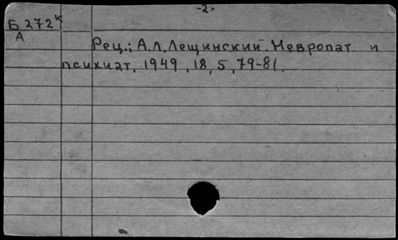 -2-
Б 272к
А
Рец.: А.Л. Лещинский. Невропат. и
психиат., 1949, 18, 5, 79-81.